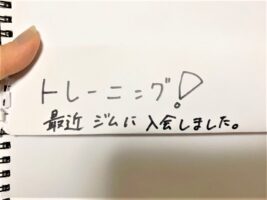 トレーニング!
最近 ジムに 入会しました。